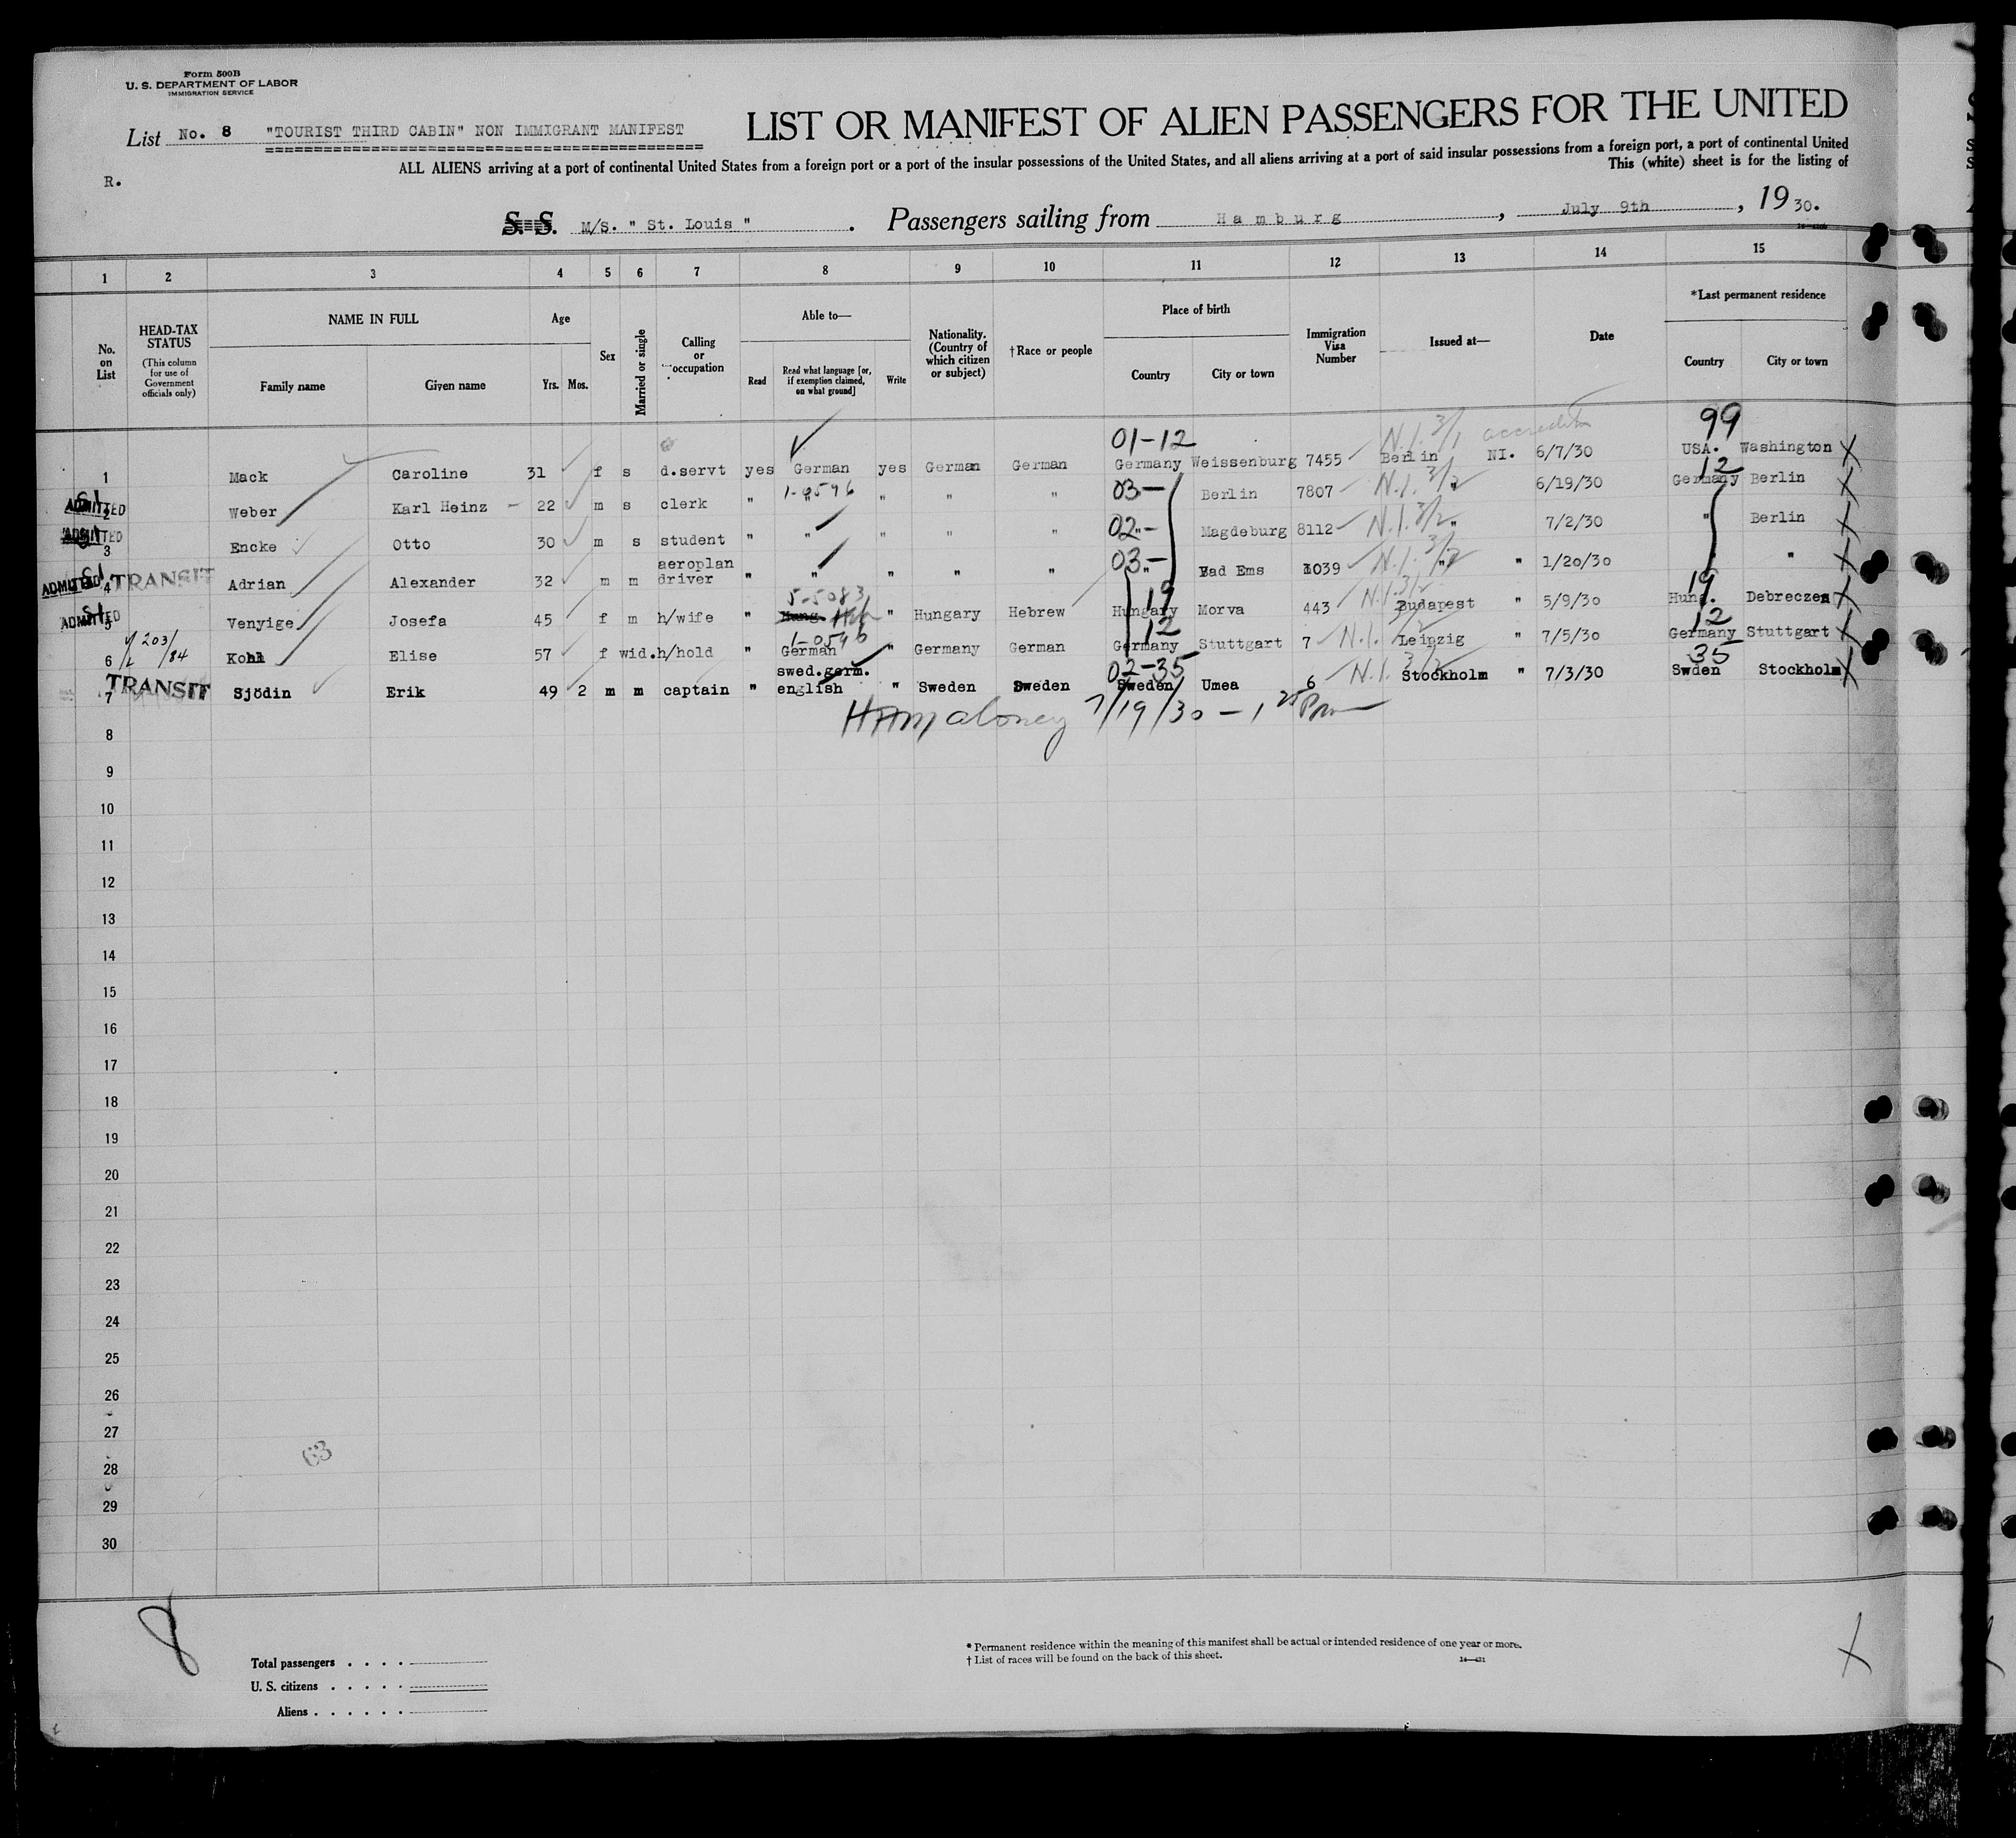 Form 500B
U. S. DEPARTMENT OF LABOR
IMMIGRATION SERVICE
List No. 8 "TOURIST THIRD CABIN" NON IMMIGRANT MANIFEST
LIST OR MANIFEST OF ALIEN PASSENGERS FOR THE UNITED
ALL ALIENS arriving at a port of continental United States from a foreign port or a port of the insular possessions of the United States, and all aliens arriving at a port of said insular possessions from a foreign port, a port of continental United
This (white) sheet is for the listing of
R.
S. S. M/S. " St. Louis " . Passengers sailing from Hamburg , July 9th , 19 30.
1 2 3 4 5 6 7 8 9 10 11 12 13 14 15
No. on List
HEAD-TAX STATUS
(This column for use of Government officials only)
NAME IN FULL
Family name Given name
Age
Yrs. Mos.
Sex
Married or single
Calling or occupation
Able to—
Read
Read what language [or, if exemption claimed, on what ground]
Write
Nationality. (Country of which citizen or subject)
†Race or people
Place of birth
Country City or town
Immigration Visa Number
Issued at—
Date
*Last permanent residence
Country City or town
01-12 N.I. 3/1 99
1 Mack Caroline 31 f s d.servt yes German yes German German Germany Weissenburg 7455 Berlin NI. 6/7/30 USA. Washington
1-0596 03- N.I. 3/2 12
ADMITTED 2 Weber Karl Heinz 22 m s clerk " " " " " Berlin 7807 " 6/19/30 Germany Berlin
02- N.I. 3/2
ADMITTED 3 Encke Otto 30 m s student " " " " " " Magdeburg 8112 " 7/2/30 " Berlin
03- N.I. 3/2
ADMITTED 4 TRANSIT Adrian Alexander 32 m m aeroplan driver " " " " " " Bad Ems 1039 " " 1/20/30 "
5-5083 19 N.I. 3/2 19
ADMITTED 5 Venyige Josefa 45 f m h/wife " Hung. " Hungary Hebrew Hungary Morva 443 Budapest " 5/9/30 Hung. Debreczen
203/84 1-0596 12 N.I. 12
6 Kohl Elise 57 f wid. h/hold " German " Germany German Germany Stuttgart 7 Leipzig " 7/5/30 Germany Stuttgart
02-35 N.I. 3/2 35
TRANSIT 7 Sjödin Erik 49 2 m m captain " swed.germ. english " Sweden Sweden Sweden Umea 6 Stockholm " 7/3/30 Swden Stockholm
Maloney 7/19/30 - 1 25 Pm
8
9
10
11
12
13
14
15
16
17
18
19
20
21
22
23
24
25
26
27
28
29
30
63
8
Total passengers
U. S. citizens
Aliens
* Permanent residence within the meaning of this manifest shall be actual or intended residence of one year or more.
† List of races will be found on the back of this sheet.